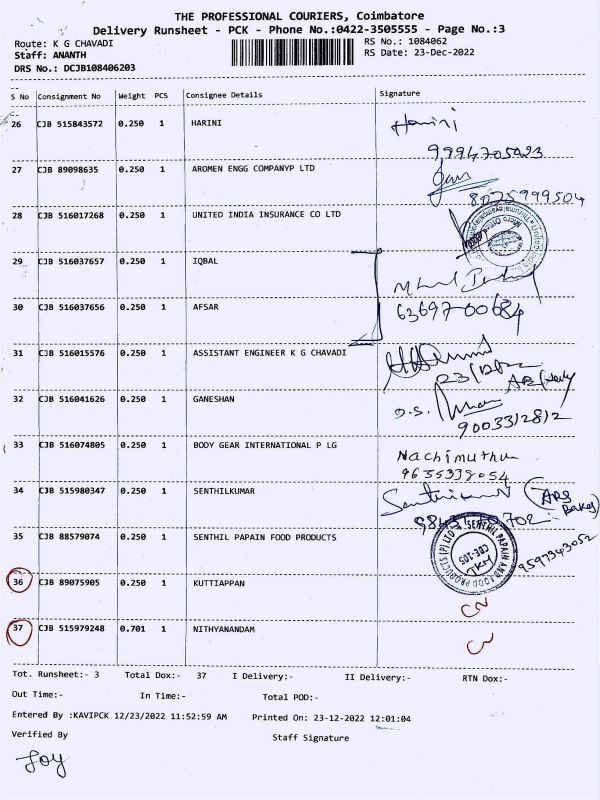 THE PROFESSIONAL COURIERS, Coimbatore
Delivery Runsheet - PCK - Phone No.:0422-3505555 - Page No.:3
Route: K G CHAVADI RS No.: 1084062
Staff: ANANTH RS Date: 23-Dec-2022
DRS No.: DCJB108406203
S No Consignment No Weight PCS Consignee Details Signature
26 CJB 515843572 0.250 1 HARINI Harini
9994705023
27 CJB 89098635 0.250 1 AROMEN ENGG COMPANYP LTD
8025999504
28 CJB 516017268 0.250 1 UNITED INDIA INSURANCE CO LTD
29 CJB 516037657 0.250 1 IQBAL
30 CJB 516037656 0.250 1 AFSAR 63697-00684
31 CJB 516015576 0.250 1 ASSISTANT ENGINEER K G CHAVADI
32 CJB 516041626 0.250 1 GANESHAN D.S.
9003312812
33 CJB 516074805 0.250 1 BODY GEAR INTERNATIONAL P LG Nachimuthu
9635338054
34 CJB 515980347 0.250 1 SENTHILKUMAR
35 CJB 88579074 0.250 1 SENTHIL PAPAIN FOOD PRODUCTS SENTHIL PAPAIN AND FOOD PRODUCTS (P) LTD CBE-105 9597343052
36 CJB 89075905 0.250 1 KUTTIAPPAN
37 CJB 515979248 0.701 1 NITHYANANDAM
Tot. Runsheet:- 3 Total Dox:- 37 I Delivery:- II Delivery:- RTN Dox:-
Out Time:- In Time:- Total POD:-
Entered By :KAVIPCK 12/23/2022 11:52:59 AM Printed On: 23-12-2022 12:01:04
Verified By Staff Signature
Joy